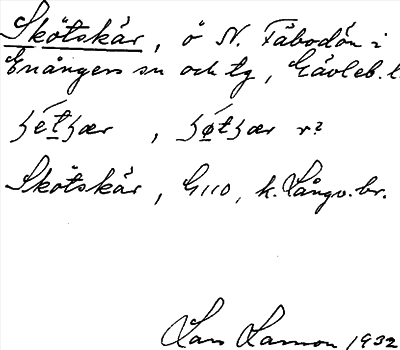 Skötskär, ö N. Fäbodön i
Enångers sn och tg, Gävleb. l.
ʃétʃær, ʃøtʃær r?
Skötskär, G110, k. Långv. br.
Lars Larsson 1932